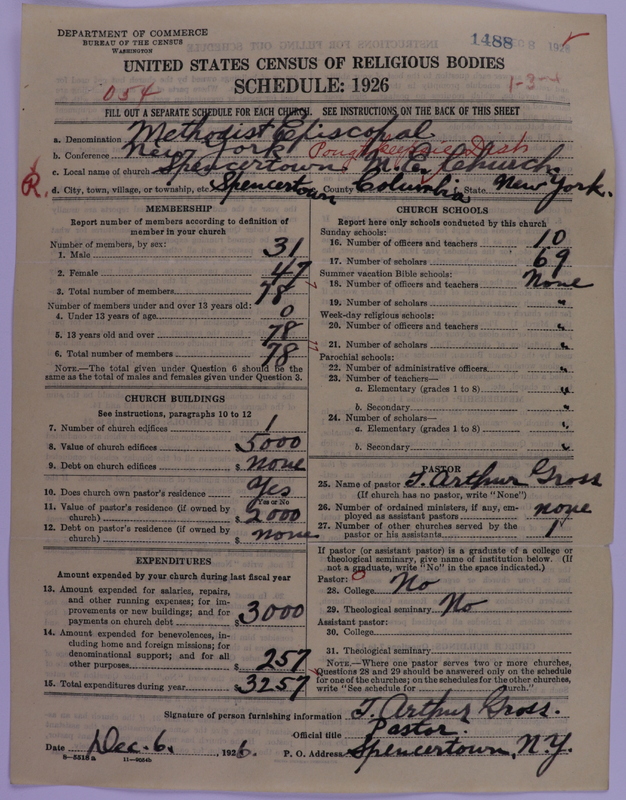 DEPARTMENT OF COMMERCE
BUREAU OF THE CENSUS
WASHINGTON
1488
UNITED STATES CENSUS OF RELIGIOUS BODIES
SCHEDULE: 1926
054
1-3rd
FILL OUT A SEPARATE SCHEDULE FOR EACH CHURCH. SEE INSTRUCTIONS ON THE BACK OF THIS SHEET
a. Denomination Methodist Episcopal
b. Conference New York Poughkeepsie Dist
c. Local name of church Spencertown M. E. Church
R. d. City, town, village, or township, etc. Spencertown County Columbia State New York.
MEMBERSHIP
Report number of members according to definition of
member in your church
Number of members, by sex:
1. Male 31
2. Female 47
3. Total number of members 78
Number of members under and over 13 years old:
4. Under 13 years of age 0
5. 13 years old and over 78
6. Total number of members 78
NOTE.—The total given under Question 6 should be the
same as the total of males and females given under Question 3.
CHURCH BUILDINGS
See instructions, paragraphs 10 to 12
7. Number of church edifices 1
8. Value of church edifices $ 5000
9. Debt on church edifices $ none
10. Does church own pastor's residence Yes
(Yes or No
11. Value of pastor's residence (if owned by
church) $ 2000
12. Debt on pastor's residence (if owned by
church) $ none
EXPENDITURES
Amount expended by your church during last fiscal year
13. Amount expended for salaries, repairs,
and other running expenses; for im-
provements or new buildings; and for
payments on church debt $ 3000
14. Amount expended for benevolences, in-
cluding home and foreign missions; for
denominational support; and for all
other purposes $ 257
15. Total expenditures during year $ 3257
CHURCH SCHOOLS
Report here only schools conducted by this church
Sunday schools:
16. Number of officers and teachers 10
17. Number of scholars 69
Summer vacation Bible schools:
18. Number of officers and teachers None
19. Number of scholars "
Week-day religious schools:
20. Number of officers and teachers "
21. Number of scholars "
Parochial schools:
22. Number of administrative officers "
23. Number of teachers—
a. Elementary (grades 1 to 8) "
b. Secondary "
24. Number of scholars—
a. Elementary (grades 1 to 8) "
b. Secondary "
PASTOR
25. Name of pastor T. Arthur Gross
(If church has no pastor, write "None")
26. Number of ordained ministers, if any, em-
ployed as assistant pastors none
27. Number of other churches served by the
pastor or his assistants 1
If pastor (or assistant pastor) is a graduate of a college or
theological seminary, give name of institution below. (If
not a graduate, write "No" in the space indicated.)
Pastor:
28. College No
29. Theological seminary No
Assistant pastor:
30. College
31. Theological seminary
NOTE.—Where one pastor serves two or more churches,
Questions 28 and 29 should be answered only on the schedule
for one of the churches; on the schedules for the other churches,
write "See schedule for church."
Signature of person furnishing information T. Arthur Gross.
Official title Pastor.
Date Dec. 6, 1926. P. O. Address Spencertown, N.Y.